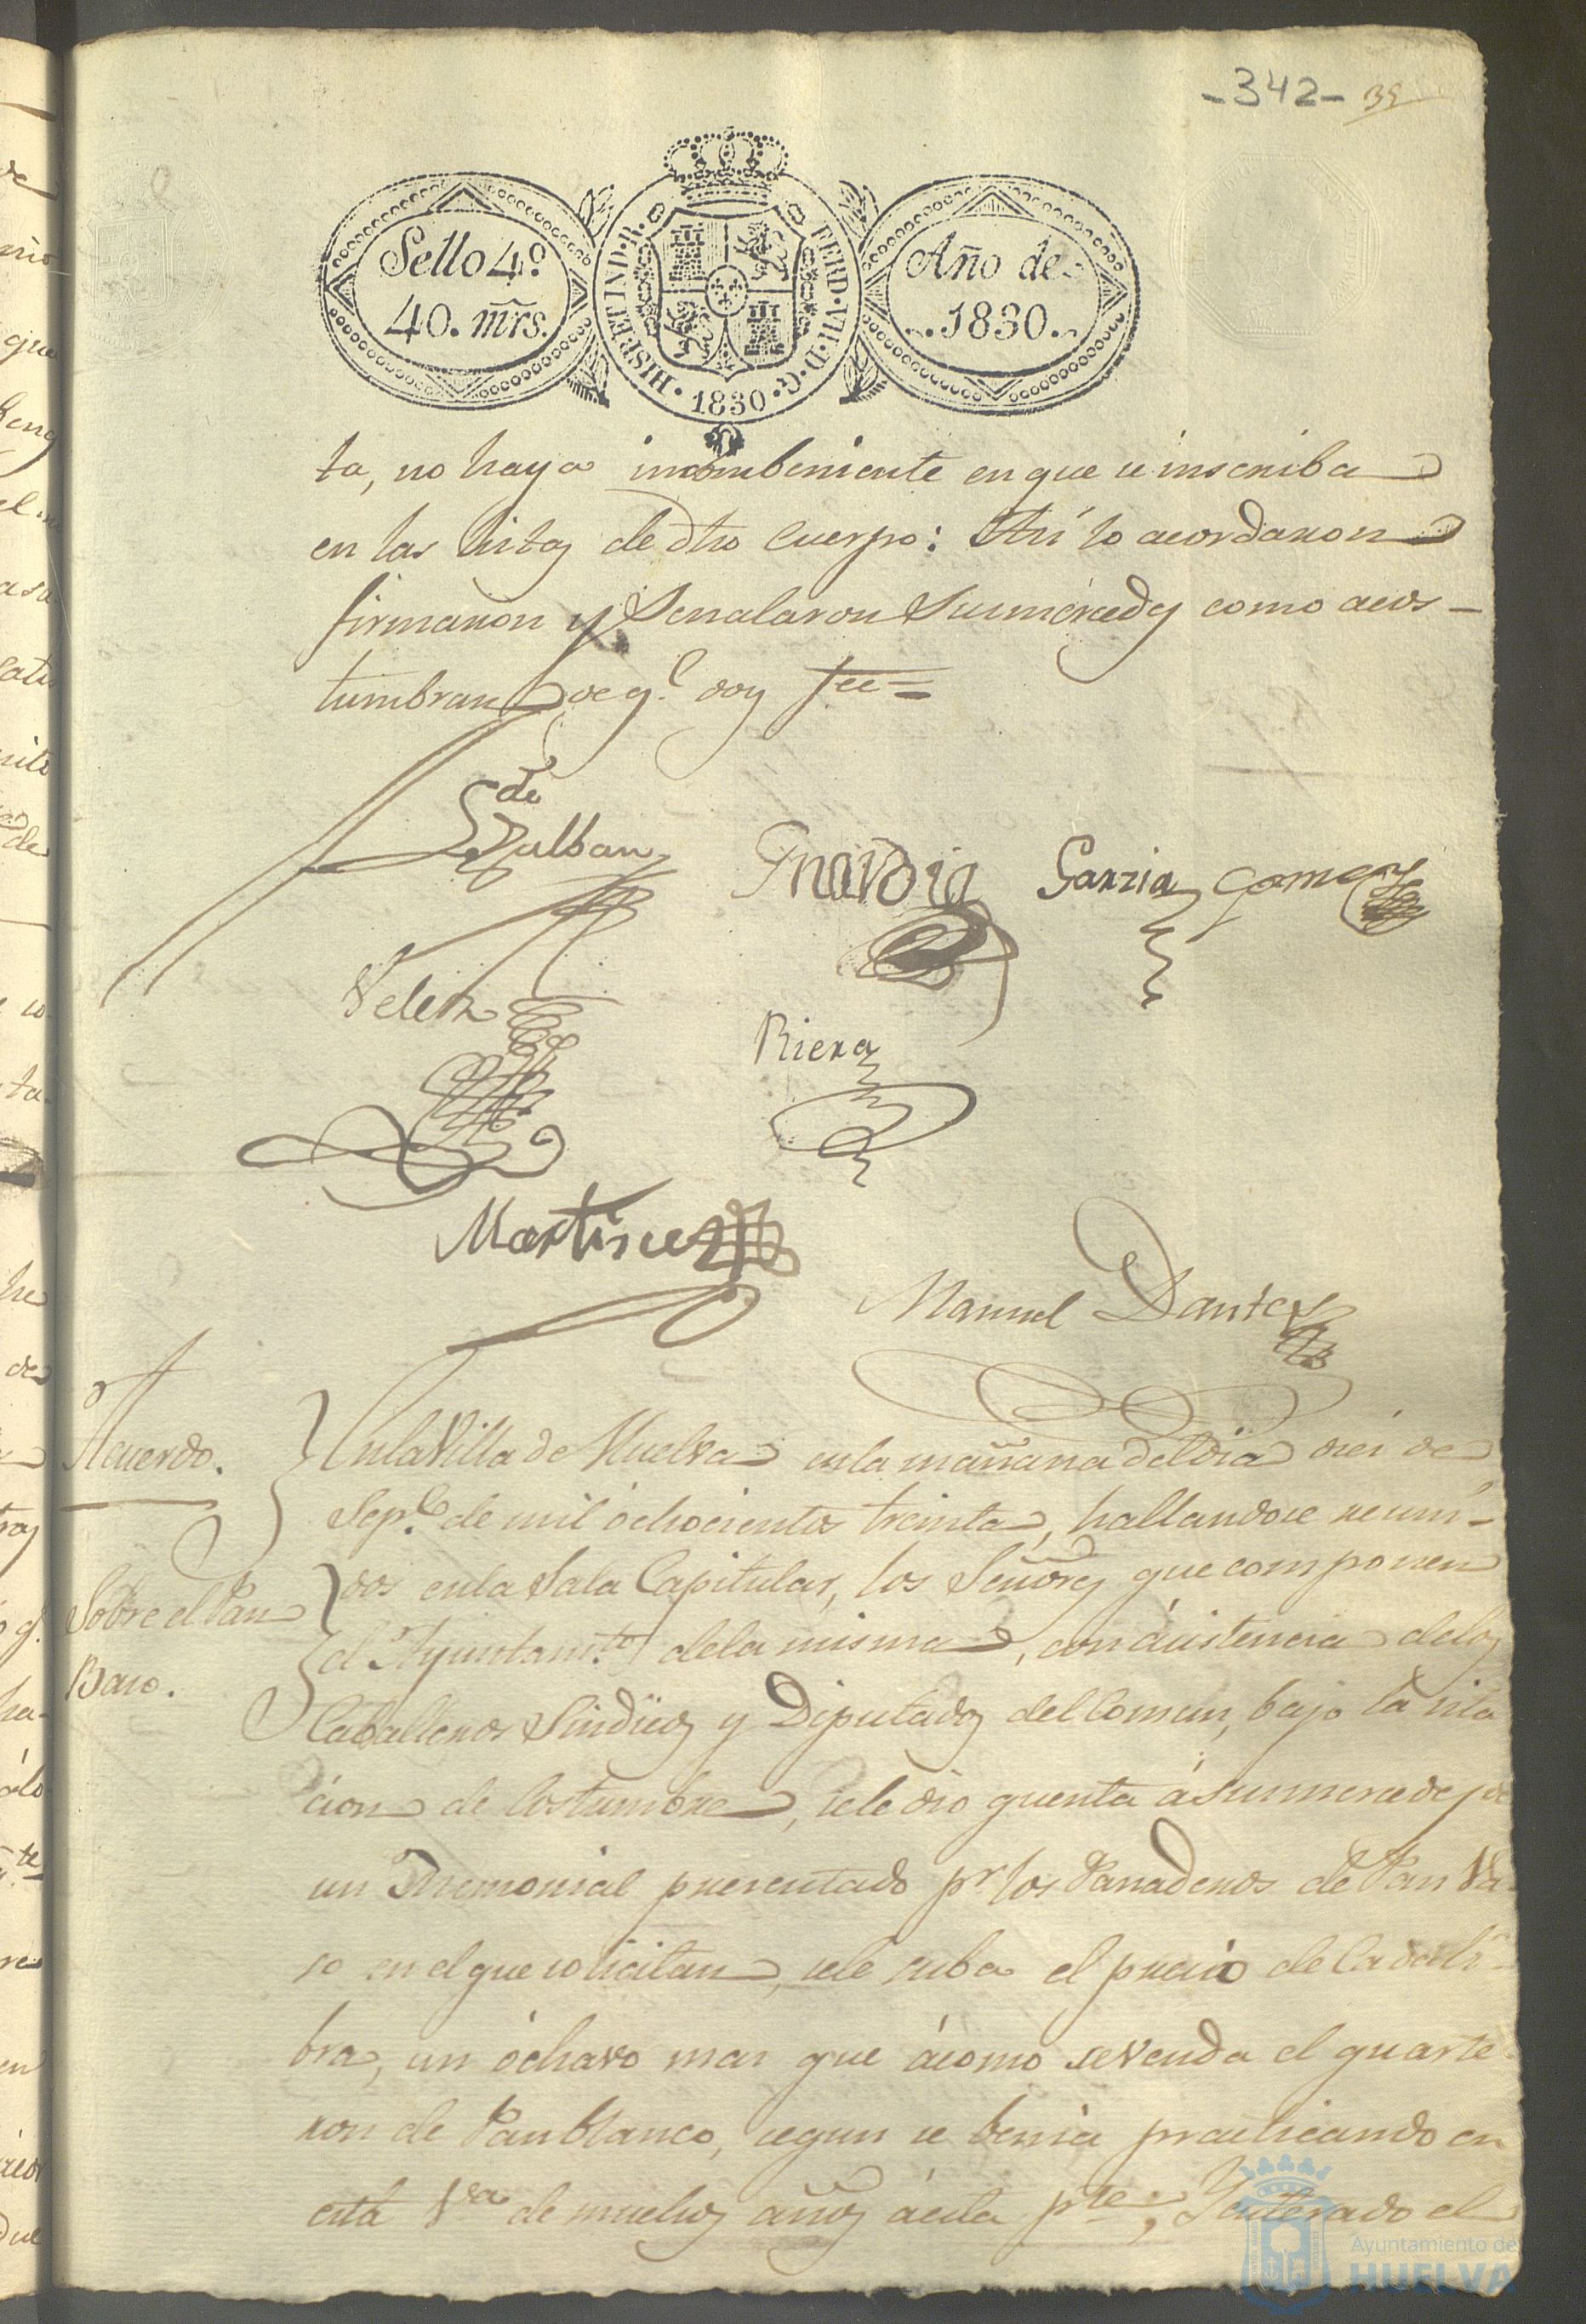 -342- 39
Sello 4º.
40. mrs.
HISP. ET IND. R. FERD. VII. D. G. 1830
Año de
1830.
ta, no haya incombeniente en que se inscriba
en las listas de dho Cuerpo: Asi lo acordaron
firmaron y Señalaron Sus mercedes como acos-
tumbran de q.e doy fee=
de
Valban
Garzia Gomez
Velez
Riera
Martinez
Manuel Dantes
Acuerdo.
Sobre el Pan
Baso.
En la Villa de Huelva en la mañana del dia dies de
Sep.e de mil ochocientos treinta, hallandose reuni-
dos en la Sala Capitular, los Señores que componen
el Ayuntam.to de la misma, con asistencia de los
Caballeros Sindicos y Diputados del Comun, bajo la sita
cion de Costumbre, se le dio quenta a sus mercedes de
un Memorial presentado p.r los Panaderos de Pan Ba
so en el que solicitan, se le suba el precio de Cada li
bra, un ochavo mas que a como se venda el quarte
ron de Pan blanco, segun se benia practicando en
esta V.a de muchos años a esta p.te; Y enterado el
Ayuntamiento de
HUELVA